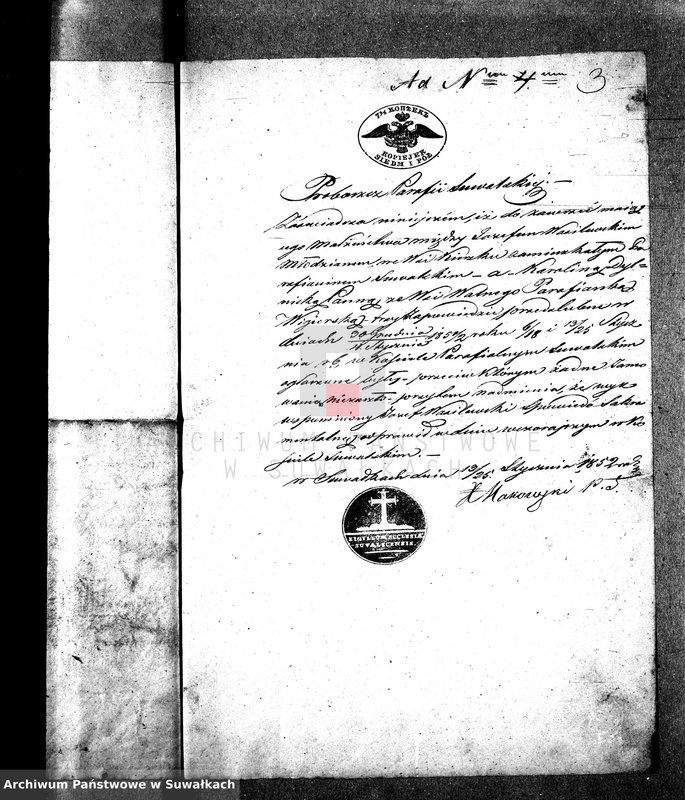 Ad Nrum 4um 3
7½ КОПѢЕКЪ
KOPIEJEK
SIEDM I PÓŁ
Proboszcz Parafii Suwalskiej.—
Zaświadcza niniejszém, iż do zawrzeć mają-
cego Małżeństwa między Jozefem Wasilewskim
Młodzianem, we Wsi zamieszkałym Pa-
rafianinem Suwalskim – a Karoliną
Panną, ze Wsi Walnego Parafianką
Wigierską, trzy zapowiedzi przedślubne w
dniach 30 Grudnia 1851/2 roku 6/18 i 13/25 Stycz
11 Stycznia
nia r. b. w Kościele Parafialnym Suwalskim
ogłoszone były, przeciw którym żadne Tamo
wanie nie zaszło, przytem nadmienia, że wyż
wspomniony Józef Wasilewski Spowiedź Sakra
mentalną odprawił w dniu wczorajszym w Ko
ściele Suwalskim. —
w Suwałkach dnia 13/25 Stycznia 1852 r.
X Makowski P. S.
SIGILLUM ECCLESIÆ
SUVALECENSIS
ARCHIWUM PAŃSTWOWE
W SUWAŁKACH
Archiwum Państwowe w Suwałkach